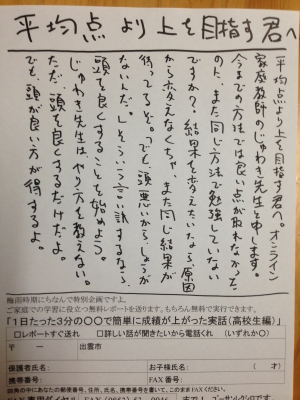 平均点より上を目指す君へ
平均点より上を目指す君へ。オンライン
家庭教師のじゅわき先生と申します。
今までの方法では良い点が取れなかった。
のに、また同じ方法で勉強していない
ですか？結果を変えたいなら原因
から変えなくちゃ、また同じ結果が
待ってるぞ。「でも、頭悪いからしょうが
ないんだ。」そういう言い訳するなら、
頭を良くすることを始めよう。
じゅわき先生はやり方を教えない。
ただ頭を良くするだけだよ。
でも、頭が良い方が得するよ。
梅雨時期にちなんで特別企画ですよ。
ご家庭での学習に役立つ無料レポートを送ります。もちろん無料で実行できます。
「1日たった3分の〇〇で簡単に成績が上がった実話（高校生編）」
□レポートすぐ送れ □詳しい話が聞きたいから電話くれ （いずれか〇）
〒 － 出雲市
保護者氏名： お子様氏名： （ 才）
携帯番号： FAX番号：